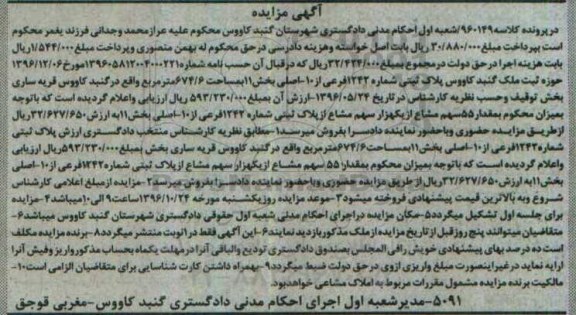 آگهی مزایده
درپرونده کلاسه ۹۶۰۱۴۹/شعبه اول احکام مدنی دادگستری شهرستان گنبد کاووس محکوم علیه عزازمحمد وجدانی فرزند یغمر محکوم
است بپرداخت مبلغ ۳۰/۸۸۰/۰۰۰ ریال بابت اصل خواسته وهزینه دادرسی درحق محکوم له بهمن منصوری وپرداخت مبلغ ۱/۵۴۴/۰۰۰ ریال
بابت هزینه اجرا درحق دولت درمجموع بمبلغ ۳۲/۴۲۴/۰۰۰ ریال که درقبال آن حسب نامه شماره ۱۳۹۶۰۵۸۱۲۰۰۴۰۰۰۲۲۱ مورخ ۱۳۹۶/۱۲/۰۶
حوزه ثبت ملک گنبد کاووس پلاک ثبتی شماره ۱۲۴۲ فرعی از ۱۰-اصلی بخش ۱۱ بمساحت ۶۷۴/۶ مترمربع واقع درگنبد کاووس قریه ساری
بخش توقیف وحسب نظریه کارشناس درتاریخ ۱۳۹۶/۰۵/۲۴-ارزش آن بمبلغ ۵۹۳/۲۳۰/۰۰۰ ریال ارزیابی واعلام گردیده است که باتوجه
بمیزان محکوم بمقدار ۵۵ سهم مشاع ازیکهزار سهم مشاع ازپلاک ثبتی شماره ۱۲۴۲ فرعی از ۱۰-اصلی بخش ۱۱ به ارزش ۳۲/۶۲۷/۶۵۰ ریال
ازطریق مزایده حضوری وباحضور نماینده دادسرا بفروش میرسد ۱-مطابق نظریه کارشناس منتخب دادگستری ارزش پلاک ثبتی
شماره ۱۲۴۲ فرعی از ۱۰-اصلی بخش ۱۱ بمساحت ۶۷۴/۶ مترمربع واقع درگنبد کاووس قریه ساری بخش بمبلغ ۵۹۳/۲۳۰/۰۰۰ ریال ارزیابی
واعلام گردیده است که باتوجه بمیزان محکوم بمقدار ۵۵ سهم مشاع ازیکهزار سهم مشاع ازپلاک ثبتی شماره ۱۲۴۲ فرعی از ۱۰-اصلی
بخش ۱۱ به ارزش ۳۲/۶۲۷/۶۵۰ ریال از طریق مزایده حضوری وباحضور نماینده دادسرا بفروش میرسد ۲-مزایده ازمبلغ اعلامی کارشناس
شروع و به بالاترین قیمت پیشنهادی فروخته میشود ۳-موعد مزایده روزیکشنبه مورخه ۱۳۹۶/۱۰/۲۴ ساعت ۹ الی ۱۰ میباشد ۴-مزایده
برای جلسه اول تشکیل میگردد ۵-مکان مزایده دراجرای احکام مدنی شعبه اول حقوقی دادگستری شهرستان گنبد کاووس میباشد ۶-
متقاضیان میتوانند پنج روزقبل ازتاریخ مزایده ازملک مذکوربازدید نمایند ۶-این آگهی فقط در ۱نوبت منتشر میگردد ۸-برنده مزایده مکلف
است ده درصد بهای پیشنهادی خویش رافی المجلس بصندوق دادگستری تودیع والباقی آنرا درمهلت یکماه بحساب مذکورواریز وفیش آنرا
ارایه نماید درغیراینصورت مبلغ واریزی ازوی درحق دولت ضبط میگردد ۹-بهمراه داشتن کارت شناسایی برای متقاضیان الزامی است ۱۰-
مالکیت برنده مزایده مشمول مقررات مربوط به املاک مشاعی خواهدبود.
۵۰۹۱-مدیرشعبه اول اجرای احکام مدنی دادگستری گنبد کاووس-مغربی قوجق